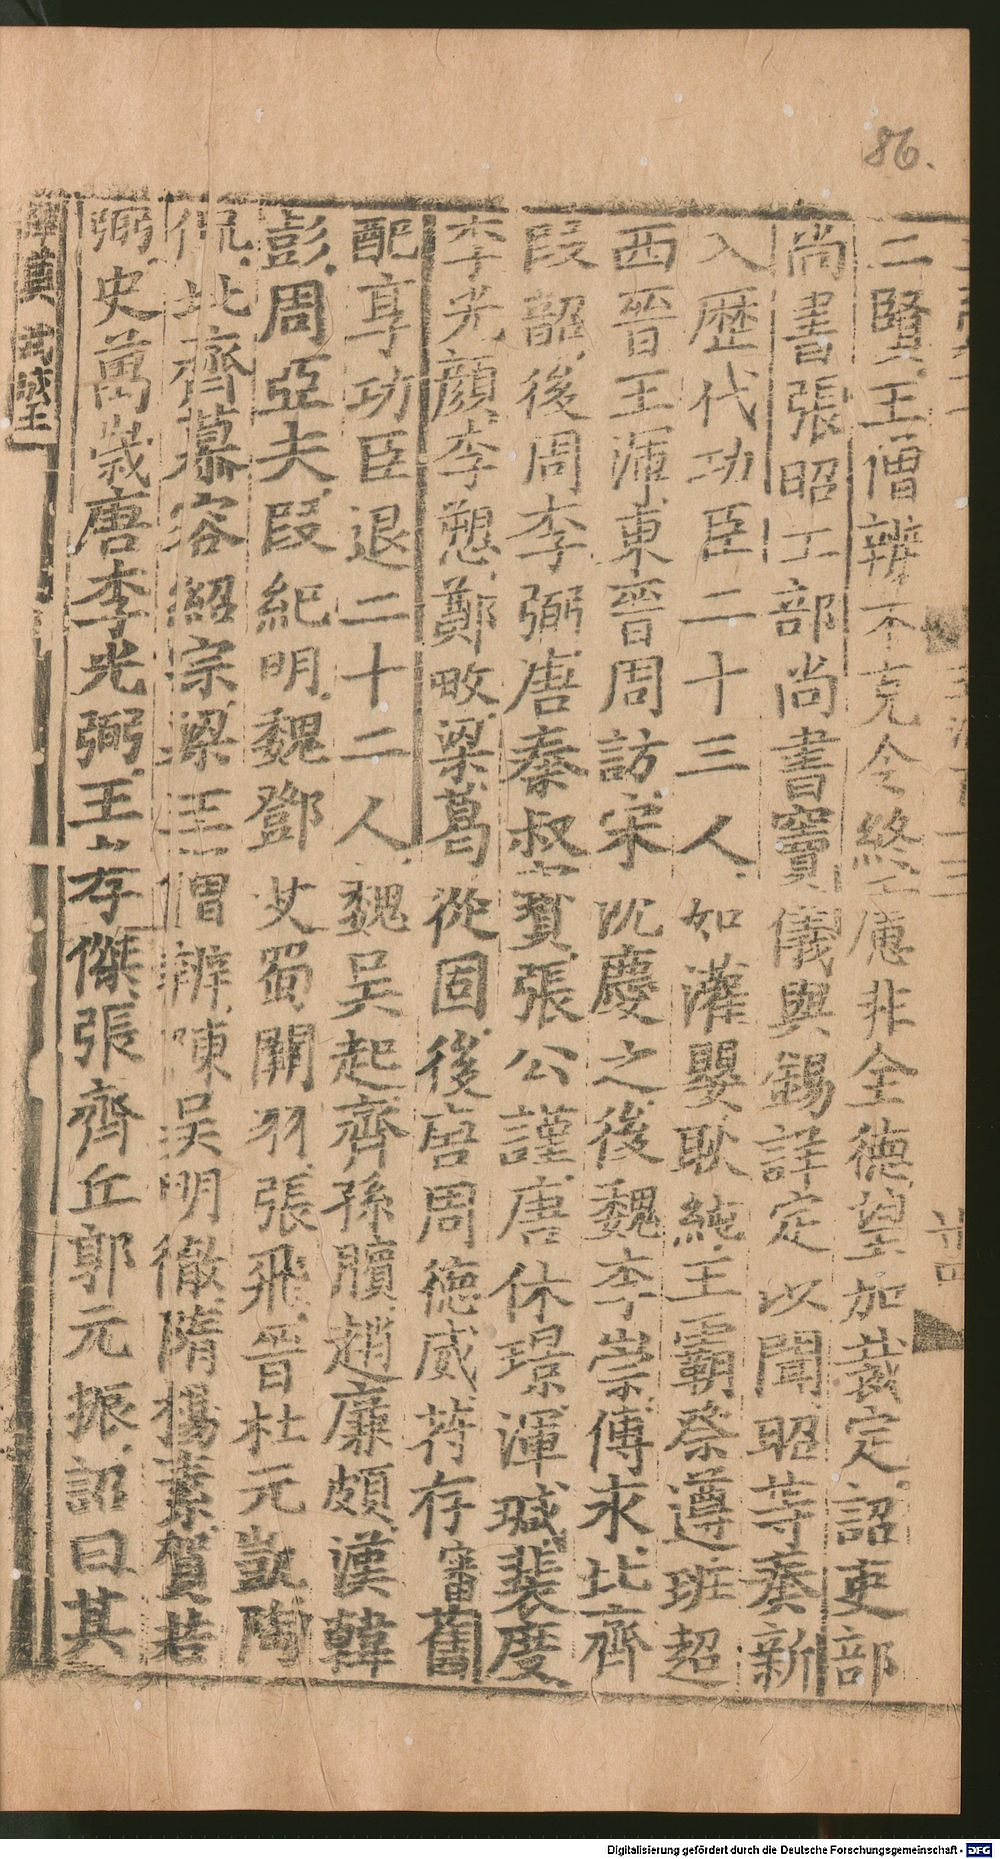 86.
二賢王僧辨不克令終慮非全德望加裁定詔吏部
尚書張昭工部尚書竇儀與錫詳定以聞昭等奏新
入歷代功臣二十三人如灌嬰耿純王霸祭遵班超
西晉王渾東晉周訪宋沈慶之後魏李崇傅永北齊
段韶後周李弼唐秦叔寶張公謹唐休璟渾瑊裴度
李光顏李愬鄭畋梁葛從周後唐周德威苻存審舊
配享功臣退二十二人魏吳起齊孫臏趙廉頗漢韓
彭周亞夫段紀明魏鄧艾蜀關羽張飛晉杜元凱陶
侃北齊慕容紹宗梁王僧辨陳吳明徹隋楊素賀若
弼史萬歲唐李光弼王孝傑張齊丘郭元振詔曰其
釋奠 武成王
Digitalisierung gefördert durch die Deutsche Forschungsgemeinschaft - DFG